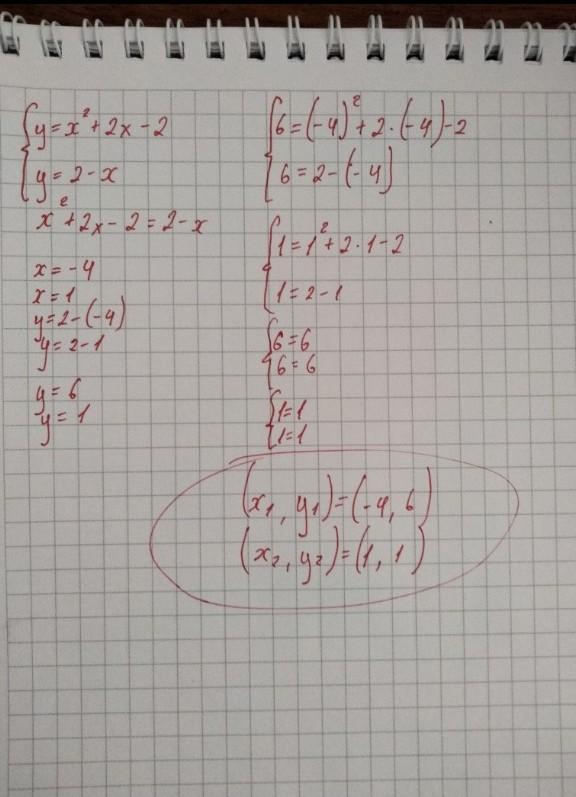 y=x²+2x-2
y=2-x
x²+2x-2=2-x
x=-4
x=1
y=2-(-4)
y=2-1
y=6
y=1
6=(-4)²+2·(-4)-2
6=2-(-4)
1=1²+2·1-2
1=2-1
6=6
6=6
1=1
1=1
(x₁, y₁)=(-4, 6)
(x₂, y₂)=(1, 1)